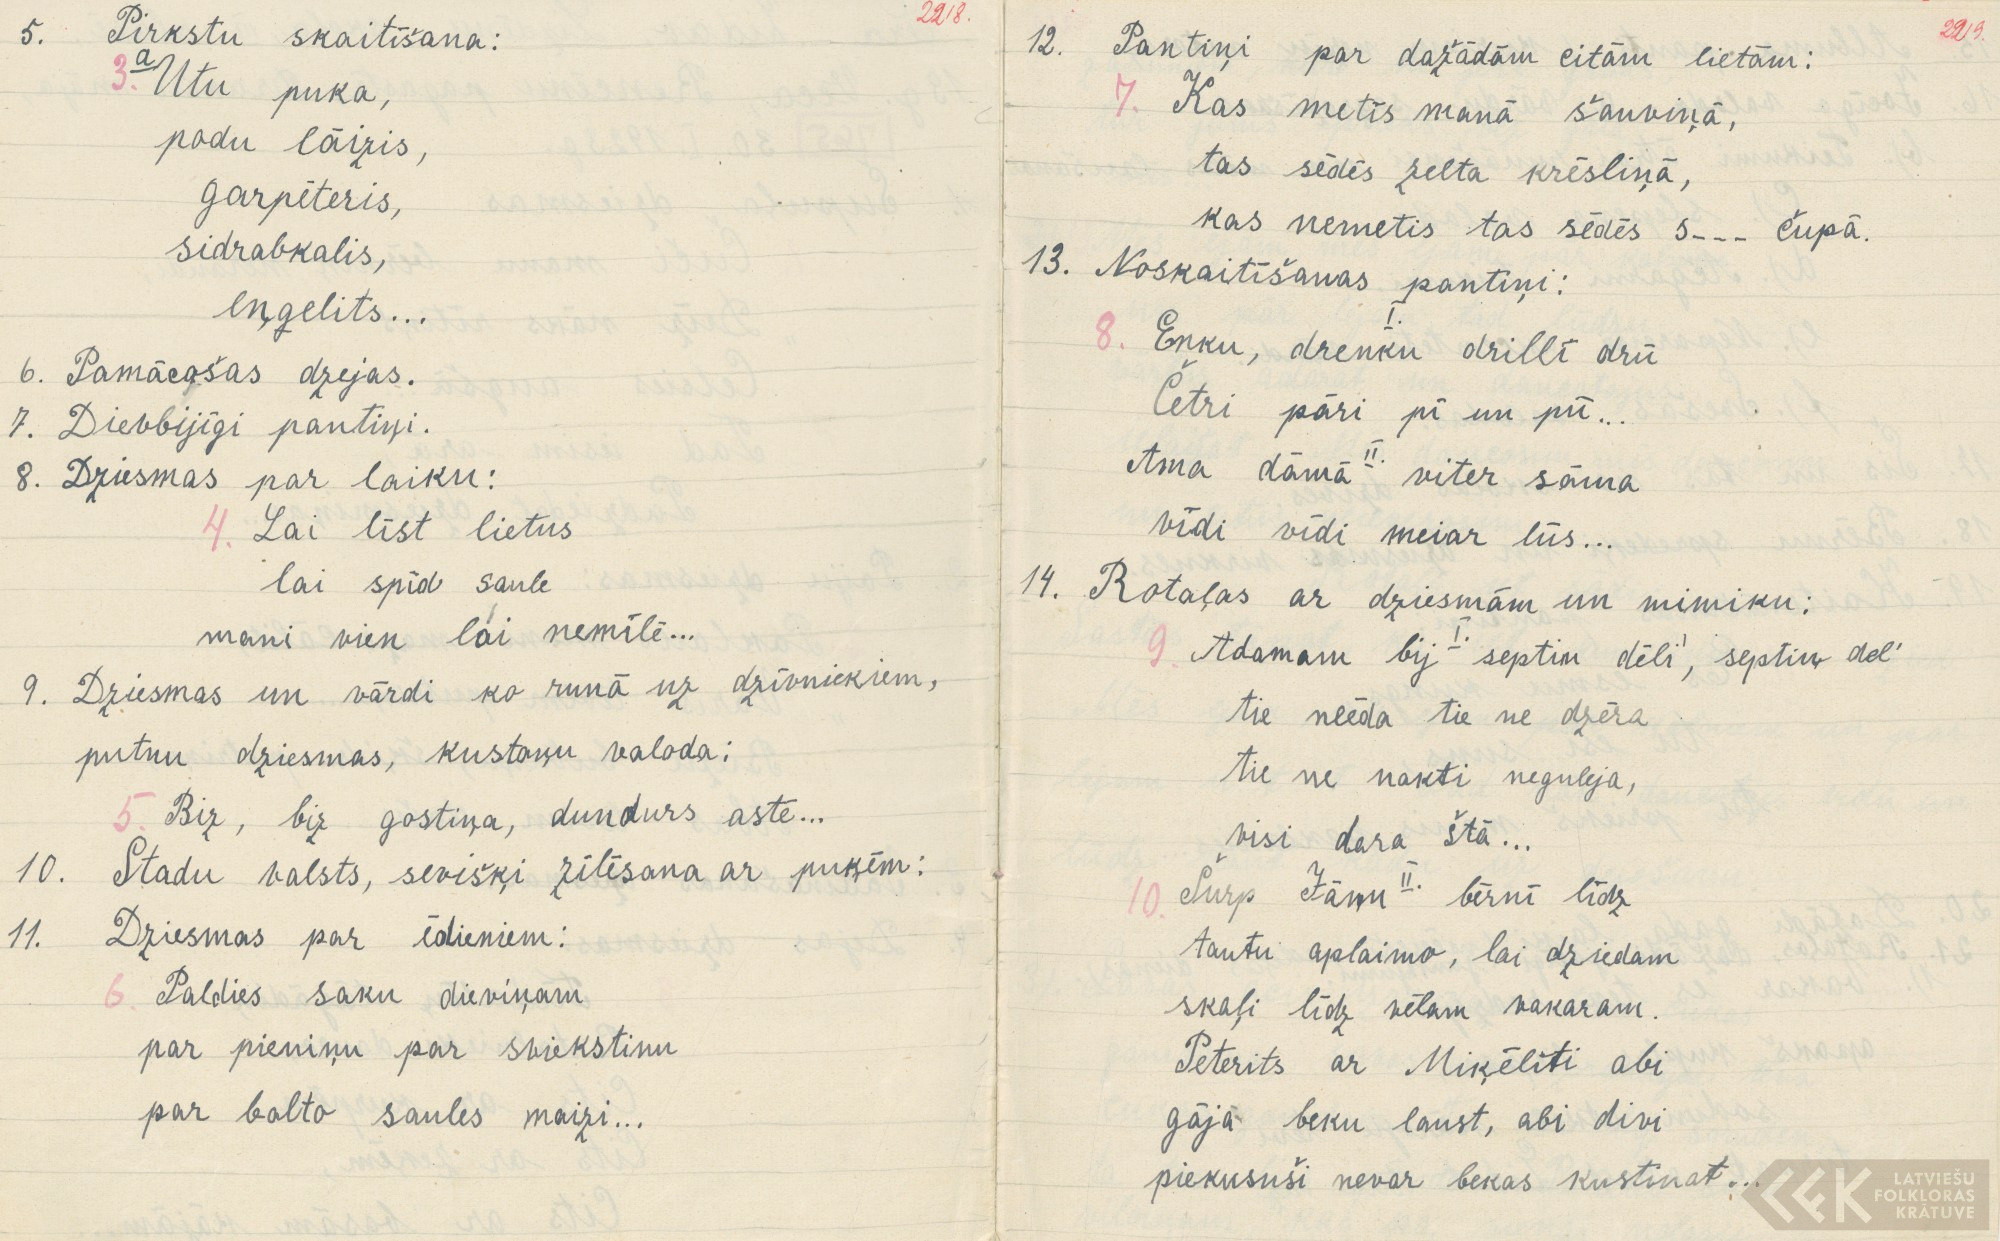 2218.
5. Pirkstu skaitīšana:
3.a Utu puka,
podu lāizis,
garpēteris,
sidrabkalis,
eņgelits...
6. Pamācošas dzejas.
7. Dievbijīgi pantiņi.
8. Dziesmas par laiku:
4. Lai līst lietus
lai spīd saule
mani vien lai nemīlē...
9. Dziesmas un vārdi ko runā uz dzīvniekiem,
putnu dziesmas, kustoņu valoda:
5. Biz, biz gostiņa, dundurs astē...
10. Stadu valsts, sevišķi zīlēsana ar puķēm:
11. Dziesmas par ēdieniem:
6. Paldies saku dieviņam
par pieniņu par sviekstinu
par balto saules maizi...
2219.
12. Pantiņi par dažādām citām lietām:
7. Kas metīs manā šauviņā,
tas sēdēs zelta krēsliņā,
kas nemetis tas sēdēs s--- čupā.
13. Noskaitīšanas pantiņi:
I.
8. Enku, drenku drillī drū
Četri pāri pī un pū...
II.
Ama dāmā viter sāma
vīdi vīdi meiar līs...
14. Rotaļas ar dziesmām un mimiku:
I.
9. Adamam bij septin dēli', septiņ del'
tie neēda tie ne dzēra
tie ne nakti neguleja,
visi dara štā...
II.
10. Šurp Jāņu bērnī līdz
tautu aplaimo, lai dziedam
skaļi līdz vēlam vakaram.
Pēterits ar Miķēlīti abi
gājā beku laust, abi divi
piekusuši nevar bekas kustinat...
LATVIEŠU
FOLKLORAS
KRĀTUVE